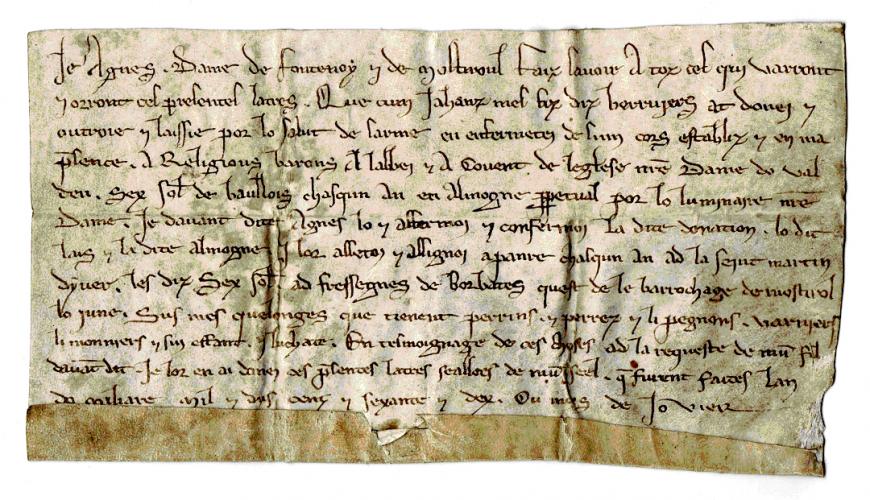 Je Agnes . Dame de Fontenoy ⁊ de Mostiroul Faiz savoir A toz ces qui varront
⁊ orront ces presentes latres . Que cum Jahanz mes fiz diz berruiers at donei ⁊
outroie ⁊ laissie por lo salut de sarme en enfermetei de sum cors establiz ⁊ en ma
p̄sence . A Religious barons Al labbei ⁊ A Covent de leglese nr̄e Dame do val
deu . Sex sol̄ de baullois chasqun An en Almogne ꝑpetual por lo luminaire nr̄e
Dame . Je davant dite Agnes lo ⁊ ⁊ confermoi la dite donation . lo dit
lais ⁊ la dite almogne ⁊ lor asseton ⁊ assignoi a panre chasqun an ad la seint martin
dyver . les diz Sex sol̄ ad fressegnes de borbates quest de le barrochage de mostirol
lo iune . Sus mes quelonges que tienent perrins . ⁊ perrez ⁊ li pegnons . varniers
li monniers ⁊ sui effant . En tesmoignage de ces choses . ad la requeste de mū fil
davāt dit . Je lor en ai donei ces p̄sentes latres sealees de mū seel . q̄ furent faites lan
do miliare . mil ⁊ dus cenz ⁊ sexante ⁊ dex . Ou mois de Jovier